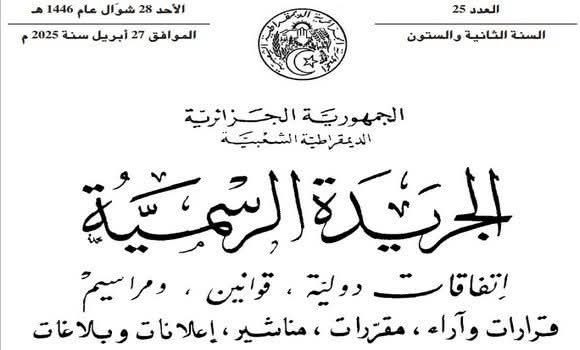 العدد 25
الأحد 28 شوّال عام 1446 هـ
السنة الثانية والستون
الموافق 27 أبريل سنة 2025 م
الجمهورية الجزائرية
الديمقراطية الشعبية
الجريدة الرسمية
إتفاقات دولية ، قوانين ، ومراسيم
قرارات وآراء ، مقررات ، مناشير ، إعلانات وبلاغات